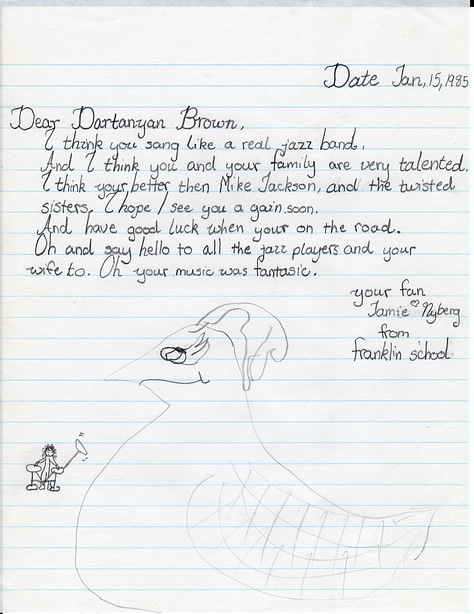 Date Jan, 15, 1985
Dear Dartanyan Brown,
I think you sang like a real jazz band.
And I think you and your family are very talented.
I think your better then Mike Jackson, and the twisted
sisters. I hope I see you a gain soon.
And have good luck when your on the road.
Oh and say hello to all the jazz players and your
wife to. Oh your music was fantasic.
your fan
Jamie Nyberg
from
franklin school